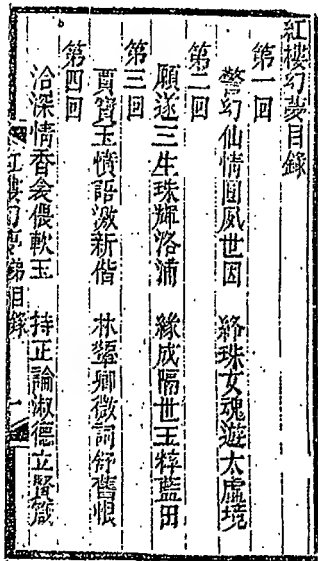 紅樓幻夢目錄
第一回
警幻仙情圓夙世因　絳珠女魂遊太虛境
第二回
願遂三生珠輝洛浦　緣成隔世玉粹藍田
第三回
賈寶玉憤語激新偕　林顰卿微詞舒舊恨
第四回
洽深情香衾偎軟玉　持正論淑德立賢箴
紅樓幻夢　目錄　一